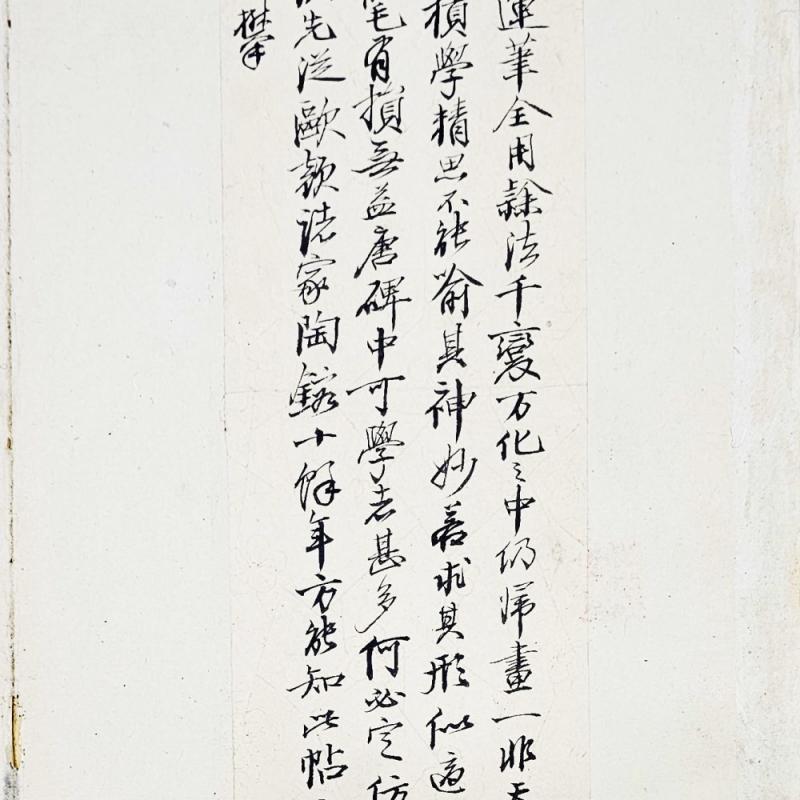 運筆全用隸法千變万化〻中仍歸畫一非天
積學精思不能窬其神妙若求其形似適
毫有損無益唐碑中可學者甚多何必定仿
先從歐顏諸家陶鎔十餘年方能知此帖
攀